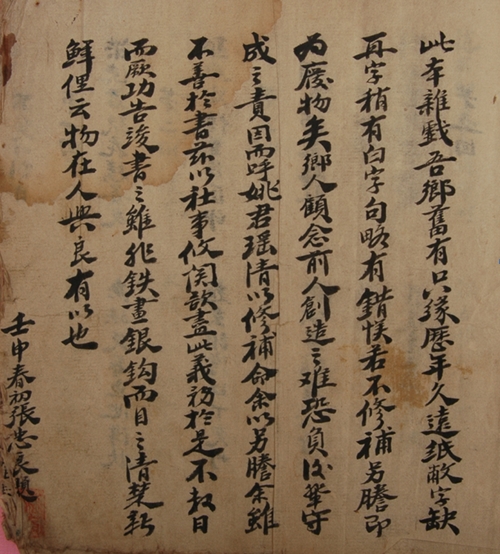 此本雜戲吾鄉舊有只緣歷年久遠紙敝字缺
再字稍有白字句略有錯悮若不修補另謄即
為廢物矣鄉人顧念前人創造之难恐負後輩守
成之責因而呼姚君瑶清以修補命余以另謄余雖
不善於書茲以社事攸関欲盡此義務於是不数日
而厥功告竣書之雖非鉄畫銀鈎而目之清楚新
鮮俚云物在人興良有以也
壬申春初張忠良題